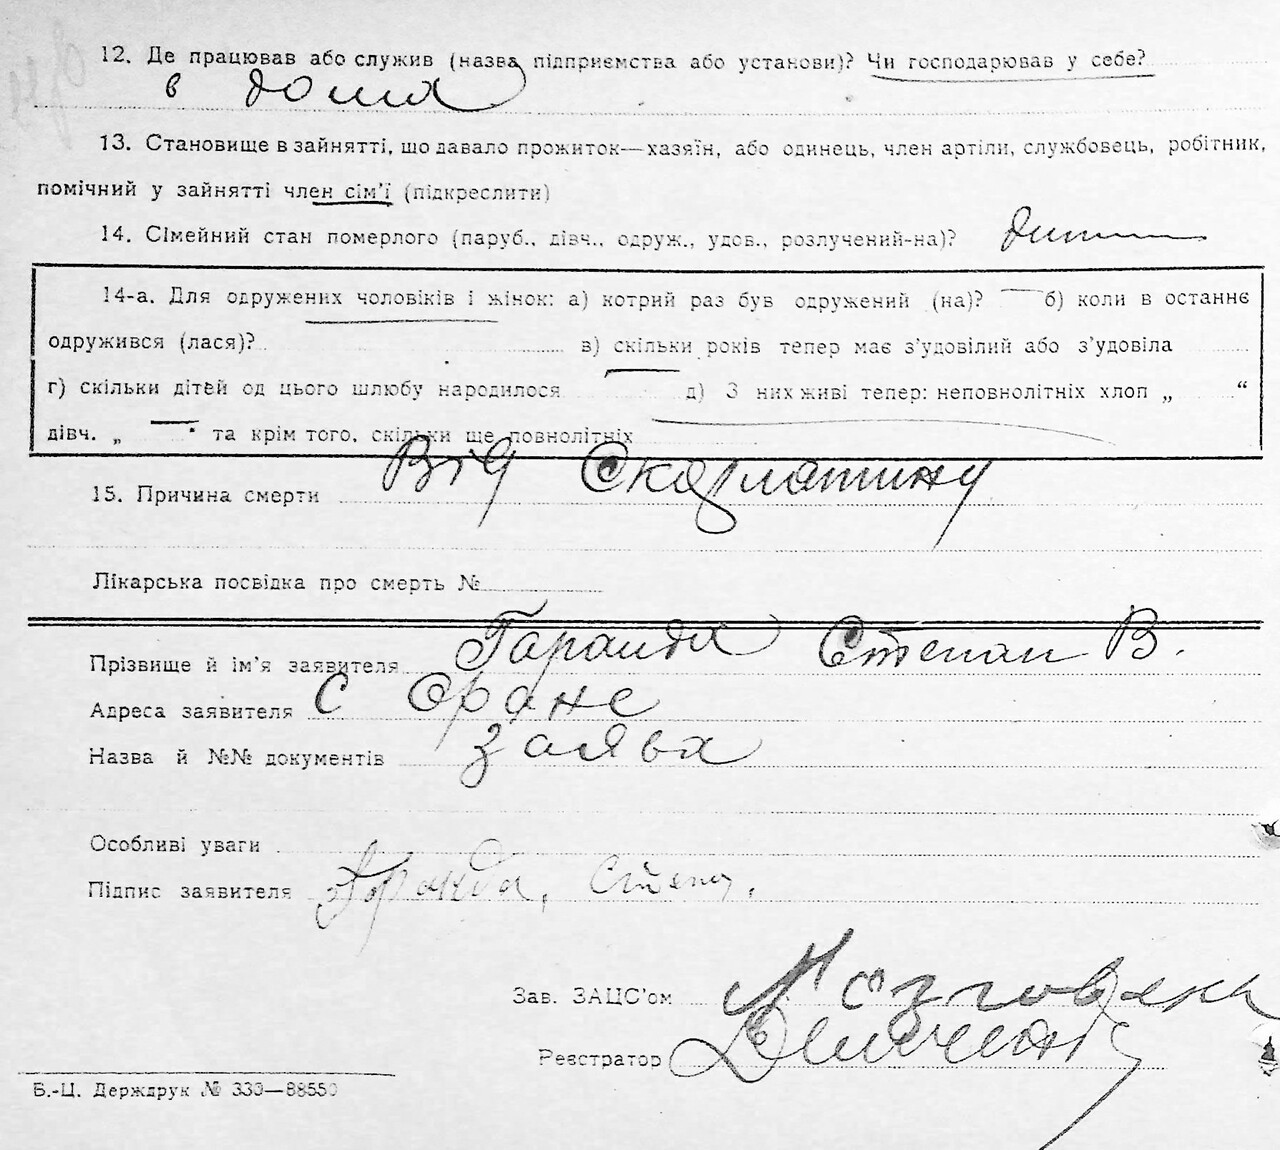 12. Де працював або служив (назва підприємства або установи)? Чи господарював у себе?
в дома
13. Становище в зайнятті, що давало прожиток—хазяїн, або одинець, член артілі, службовець, робітник,
помічний у зайнятті член сім'ї (підкреслити)
14. Сімейний стан померлого (паруб., дівч., одруж., удов., розлучений-на)?
14-а. Для одружених чоловіків і жінок: а) котрий раз був одружений (на)? — б) коли в останнє
одружився (лася)? в) скільки років тепер має з'удовілий або з'удовіла
г) скільки дітей од цього шлюбу народилося д) З них живі тепер: неповнолітніх хлоп „ “
дівч. „ — " та крім того, скільки ще повнолітніх
15. Причина смерти Від Скарлятини
Лікарська посвідка про смерть №
Прізвище й ім'я заявителя Гаранда Степан В.
Адреса заявителя С Оране
Назва й №№ документів заява
Особливі уваги
Підпис заявителя
Зав. ЗАЦС'ом
Реєстратор
Б.-Ц. Держдрук № 330—88550